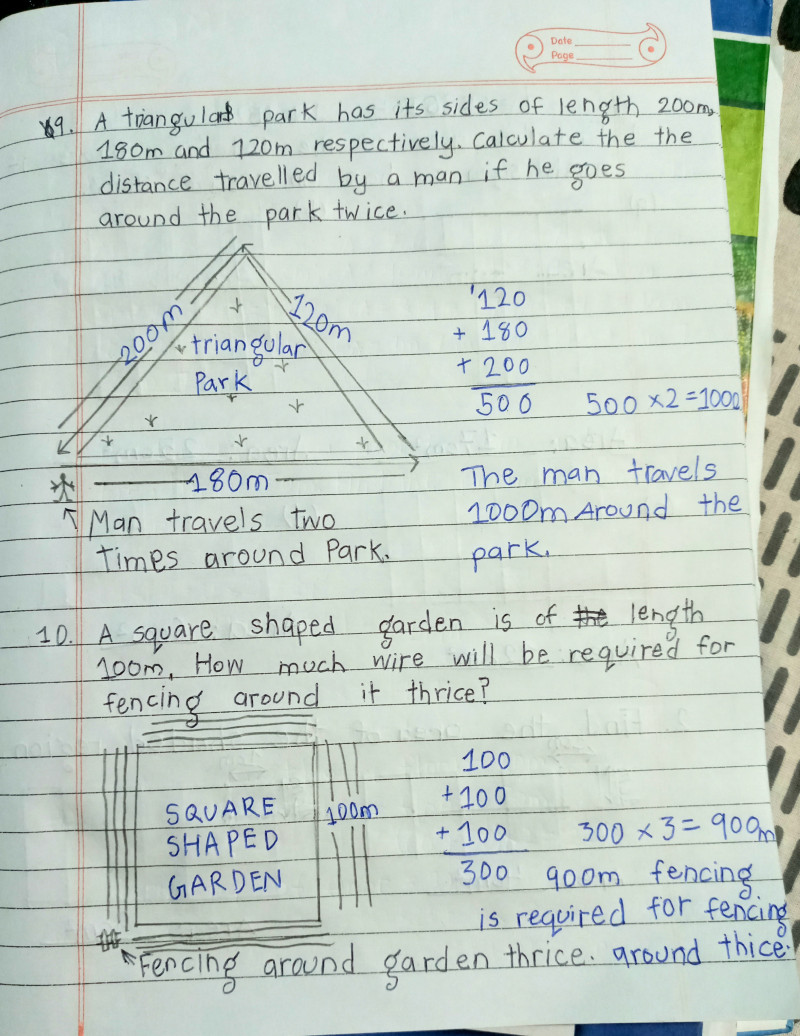 Date
Page
9. A triangular park has its sides of length 200m,
180m and 120m respectively. Calculate the the
distance travelled by a man if he goes
around the park twice.
200m
120m
triangular
Park
180m
Man travels two
times around Park.
120
+ 180
+ 200
500
500 × 2 = 1000
The man travels
1000m Around the
park.
10. A square shaped garden is of the length
100m. How much wire will be required for
fencing around it thrice?
SQUARE
SHAPED
GARDEN
100m
100
+ 100
+ 100
300
300 × 3 = 900m
900m fencing
is required for fencing
around thice.
Fencing around garden thrice.